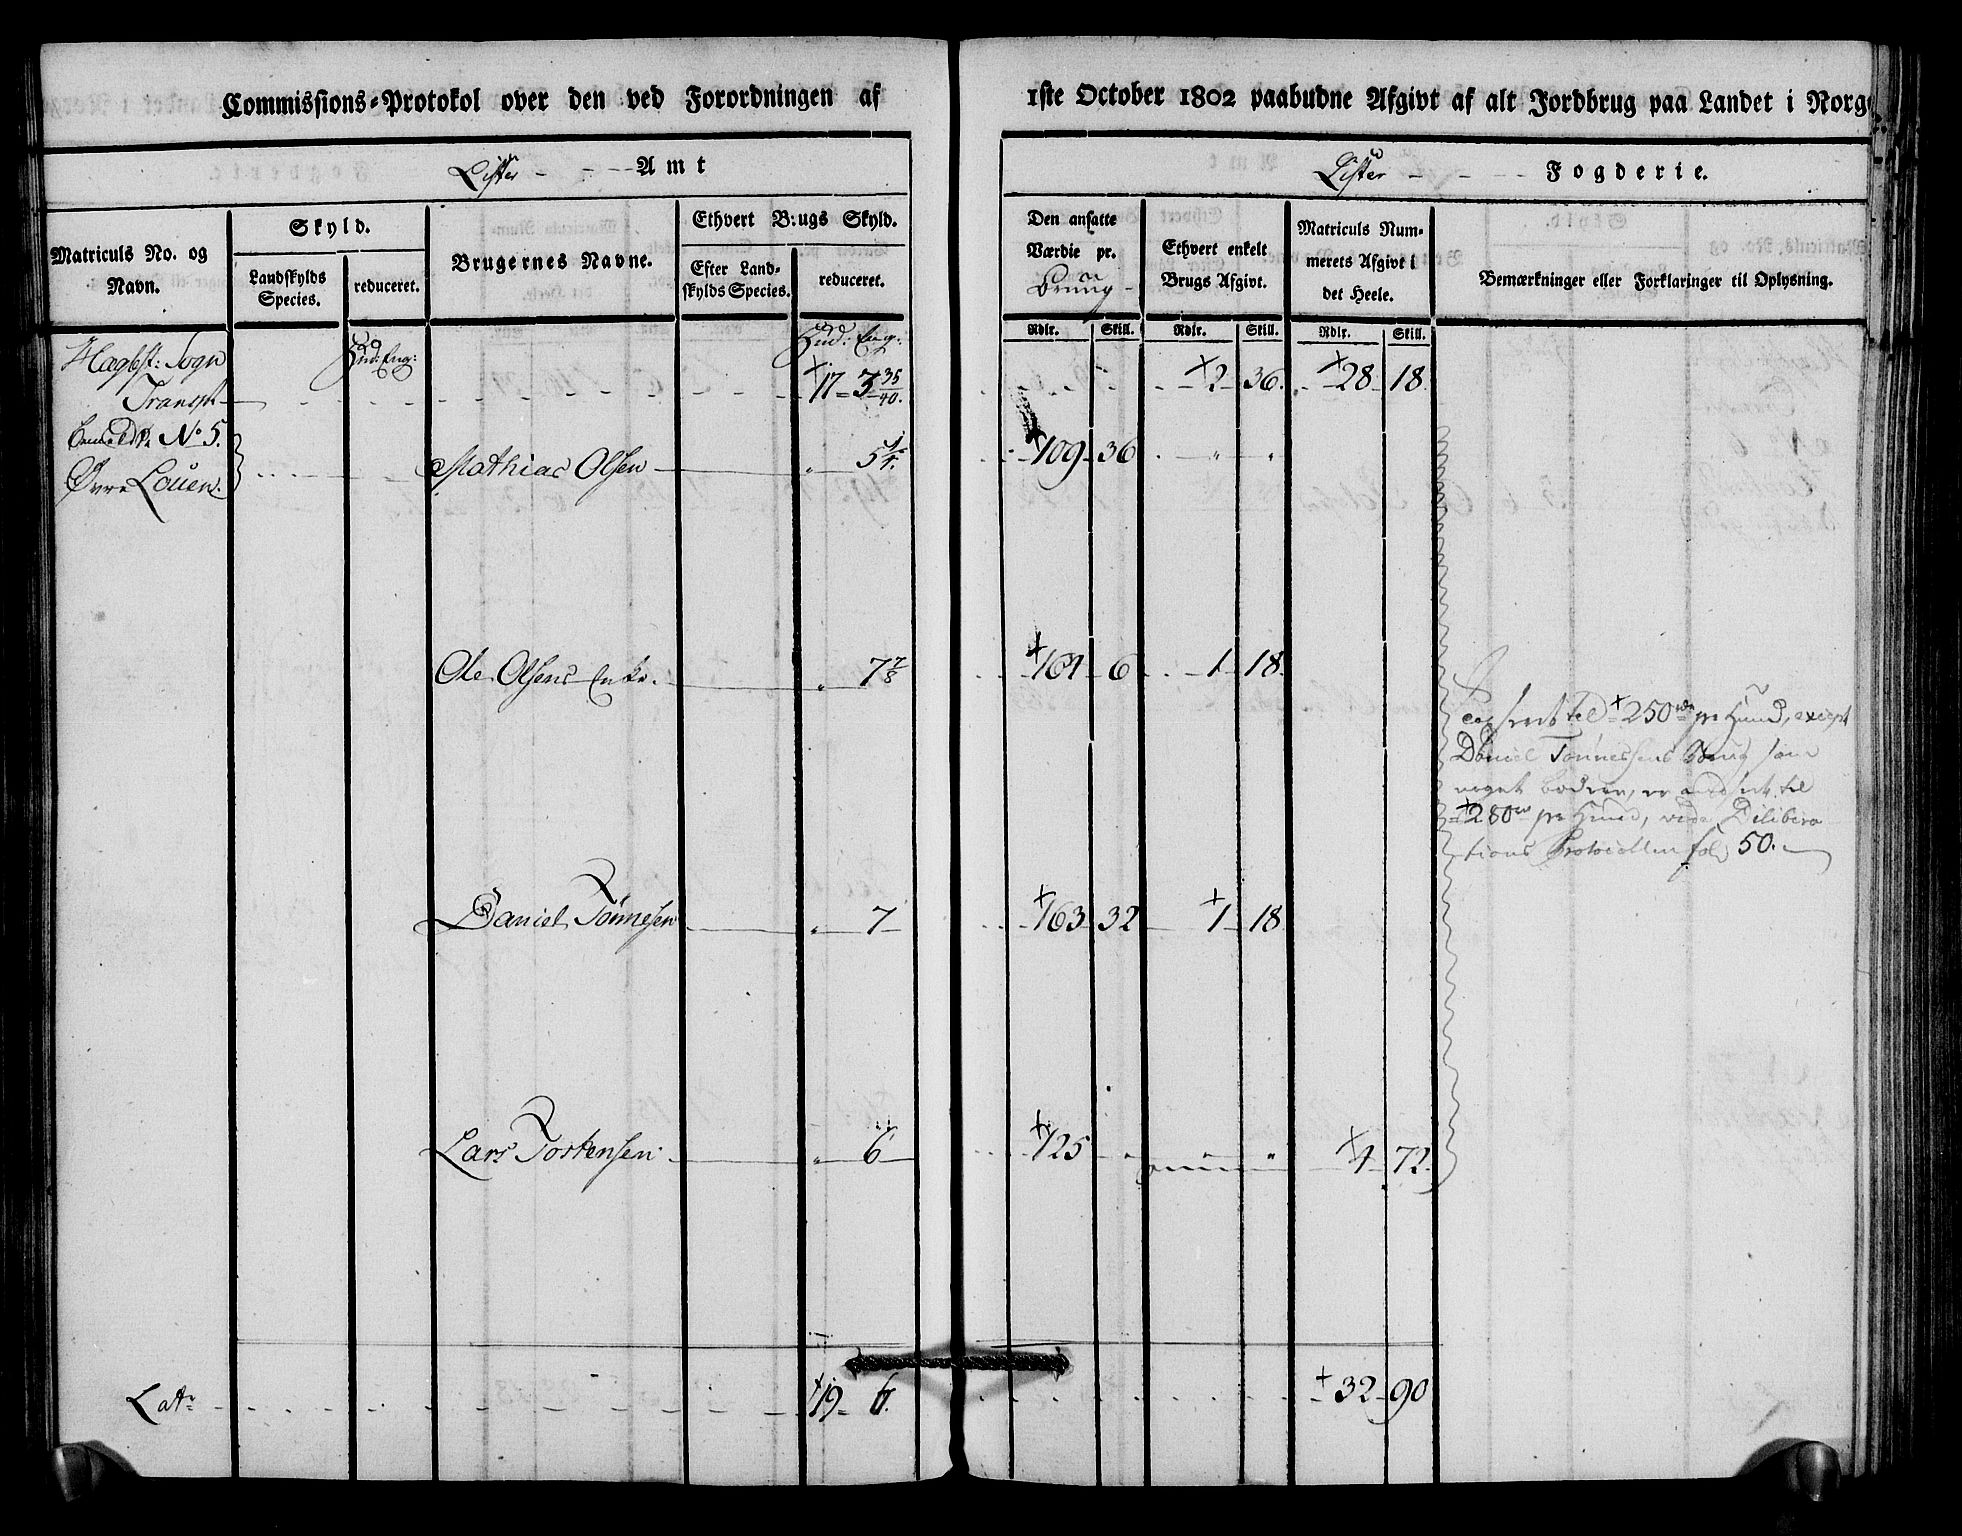 Commissions-Protokol over den ved Forordningen af 1ste October 1802 paabudne Afgivt af alt Jordbrug paa Landet i Norge
Lister Amt
Lister Fogderie.
Matriculs No. og Navn.
Skyld.
Landskylds Species.
reduceret.
Brugernes Navne.
Ethvert Brugs Skyld.
Efter Landskylds Species.
reduceret.
Den ansatte Værdie pr. Brug
Ethvert enkelt Brugs Afgivt.
Matriculs Nummerets Afgivt i det Heele.
Bemærkninger eller Forklaringer til Oplysning.
Rdlr. Skill. Rdlr. Skill. Rdlr. Skill.
Hægbst: Sogn Hud: Eng: Hud: Eng:
Transpt 17 3 35/40. 2 36. 28 18
No 5.
Øvre Louen. Mathias Olsen " 5 1/4. 109 36 " "
Ole Olsens Enke. " 7 7/8 164 6 1 18
ansat til 250 rdr pr Hud, except
Daniel Tønnessens Brug som
noget bedere, er ansat til
280 rd pr Hud, vide Delibera
tions Protocollen fol 50.
Daniel Tønnesen " 7 163 32 1 18
Lars Torkensen " 6 125 " " 4 72
Latr 19 6. 32 90